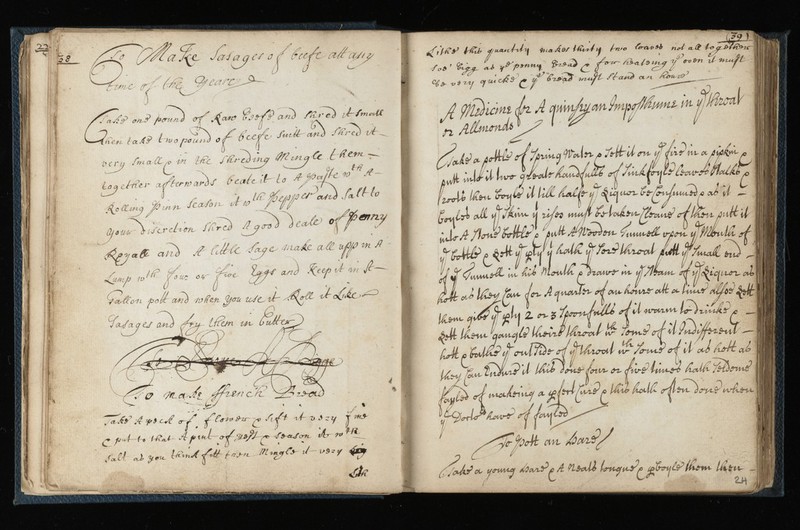 22
38
To Make Sasages of beefe att any
time of the Yeare
Take one pound of Raw beefe and shred it small
then take two pound of beefe suitt and shred it
very small & in the shreding Mingle them
together afterwards beate it to A paste wth A
Rolling pinn season it wth pepper and salt to
your discretion shred A good deale of penny
Royall and A little Sage make all upp in A
Lump wth foure or five Eggs and keep it in A
Gallon pott and when you use it Roll it Like
Sasages and fry them in butter
To make ffrench Bread
Take A peck of flower & sift it very fine
& put to that A pint of yest & season it with
salt as you think fitt then Mingle it very
Lith
(39)
Lithe this quantity makes thirty two loaves not all together
soe bigg as ye penny bread & for healeing ye oven it must
be very quicke & ye bread must stand an houre
A Medicine for A quinsy an Imposthume in ye throat
or Allmonds
Take a pottle of spring Water & sett it on ye fire in a pipkin &
putt into it two greate handfulls of Sinkfoyle leaves stalks &
roots then boyle it till halfe ye Liquor be Consumed & as it
boyles all ye skim yt rises must be taken Cleane of then putt it
into A stone bottle & putt A Wooden tunnell upon ye Mouth of
ye bottle & Lett ye pty yt hath ye sore throat putt ye small end
of ye tunnell in his Mouth & drawe in ye steam of ye Liquor as
hott as they Can for A quarter of an houre att a time alsoe Lett
them give ye pty 2 or 3 spoonfulls of it warm to drinke &
Lett them gargle theire throat wth some of it Indifferent
hott & bathe ye outside of ye throat wth some of it as hott as
they Can Endure it this done four or five times hath seldome
fayled of makeing a pfect Cure & this hath often done when
ye Doctors have of fayled
To pott an Hare
Take a young Hare & A Neats tongue & pboyle them then
24